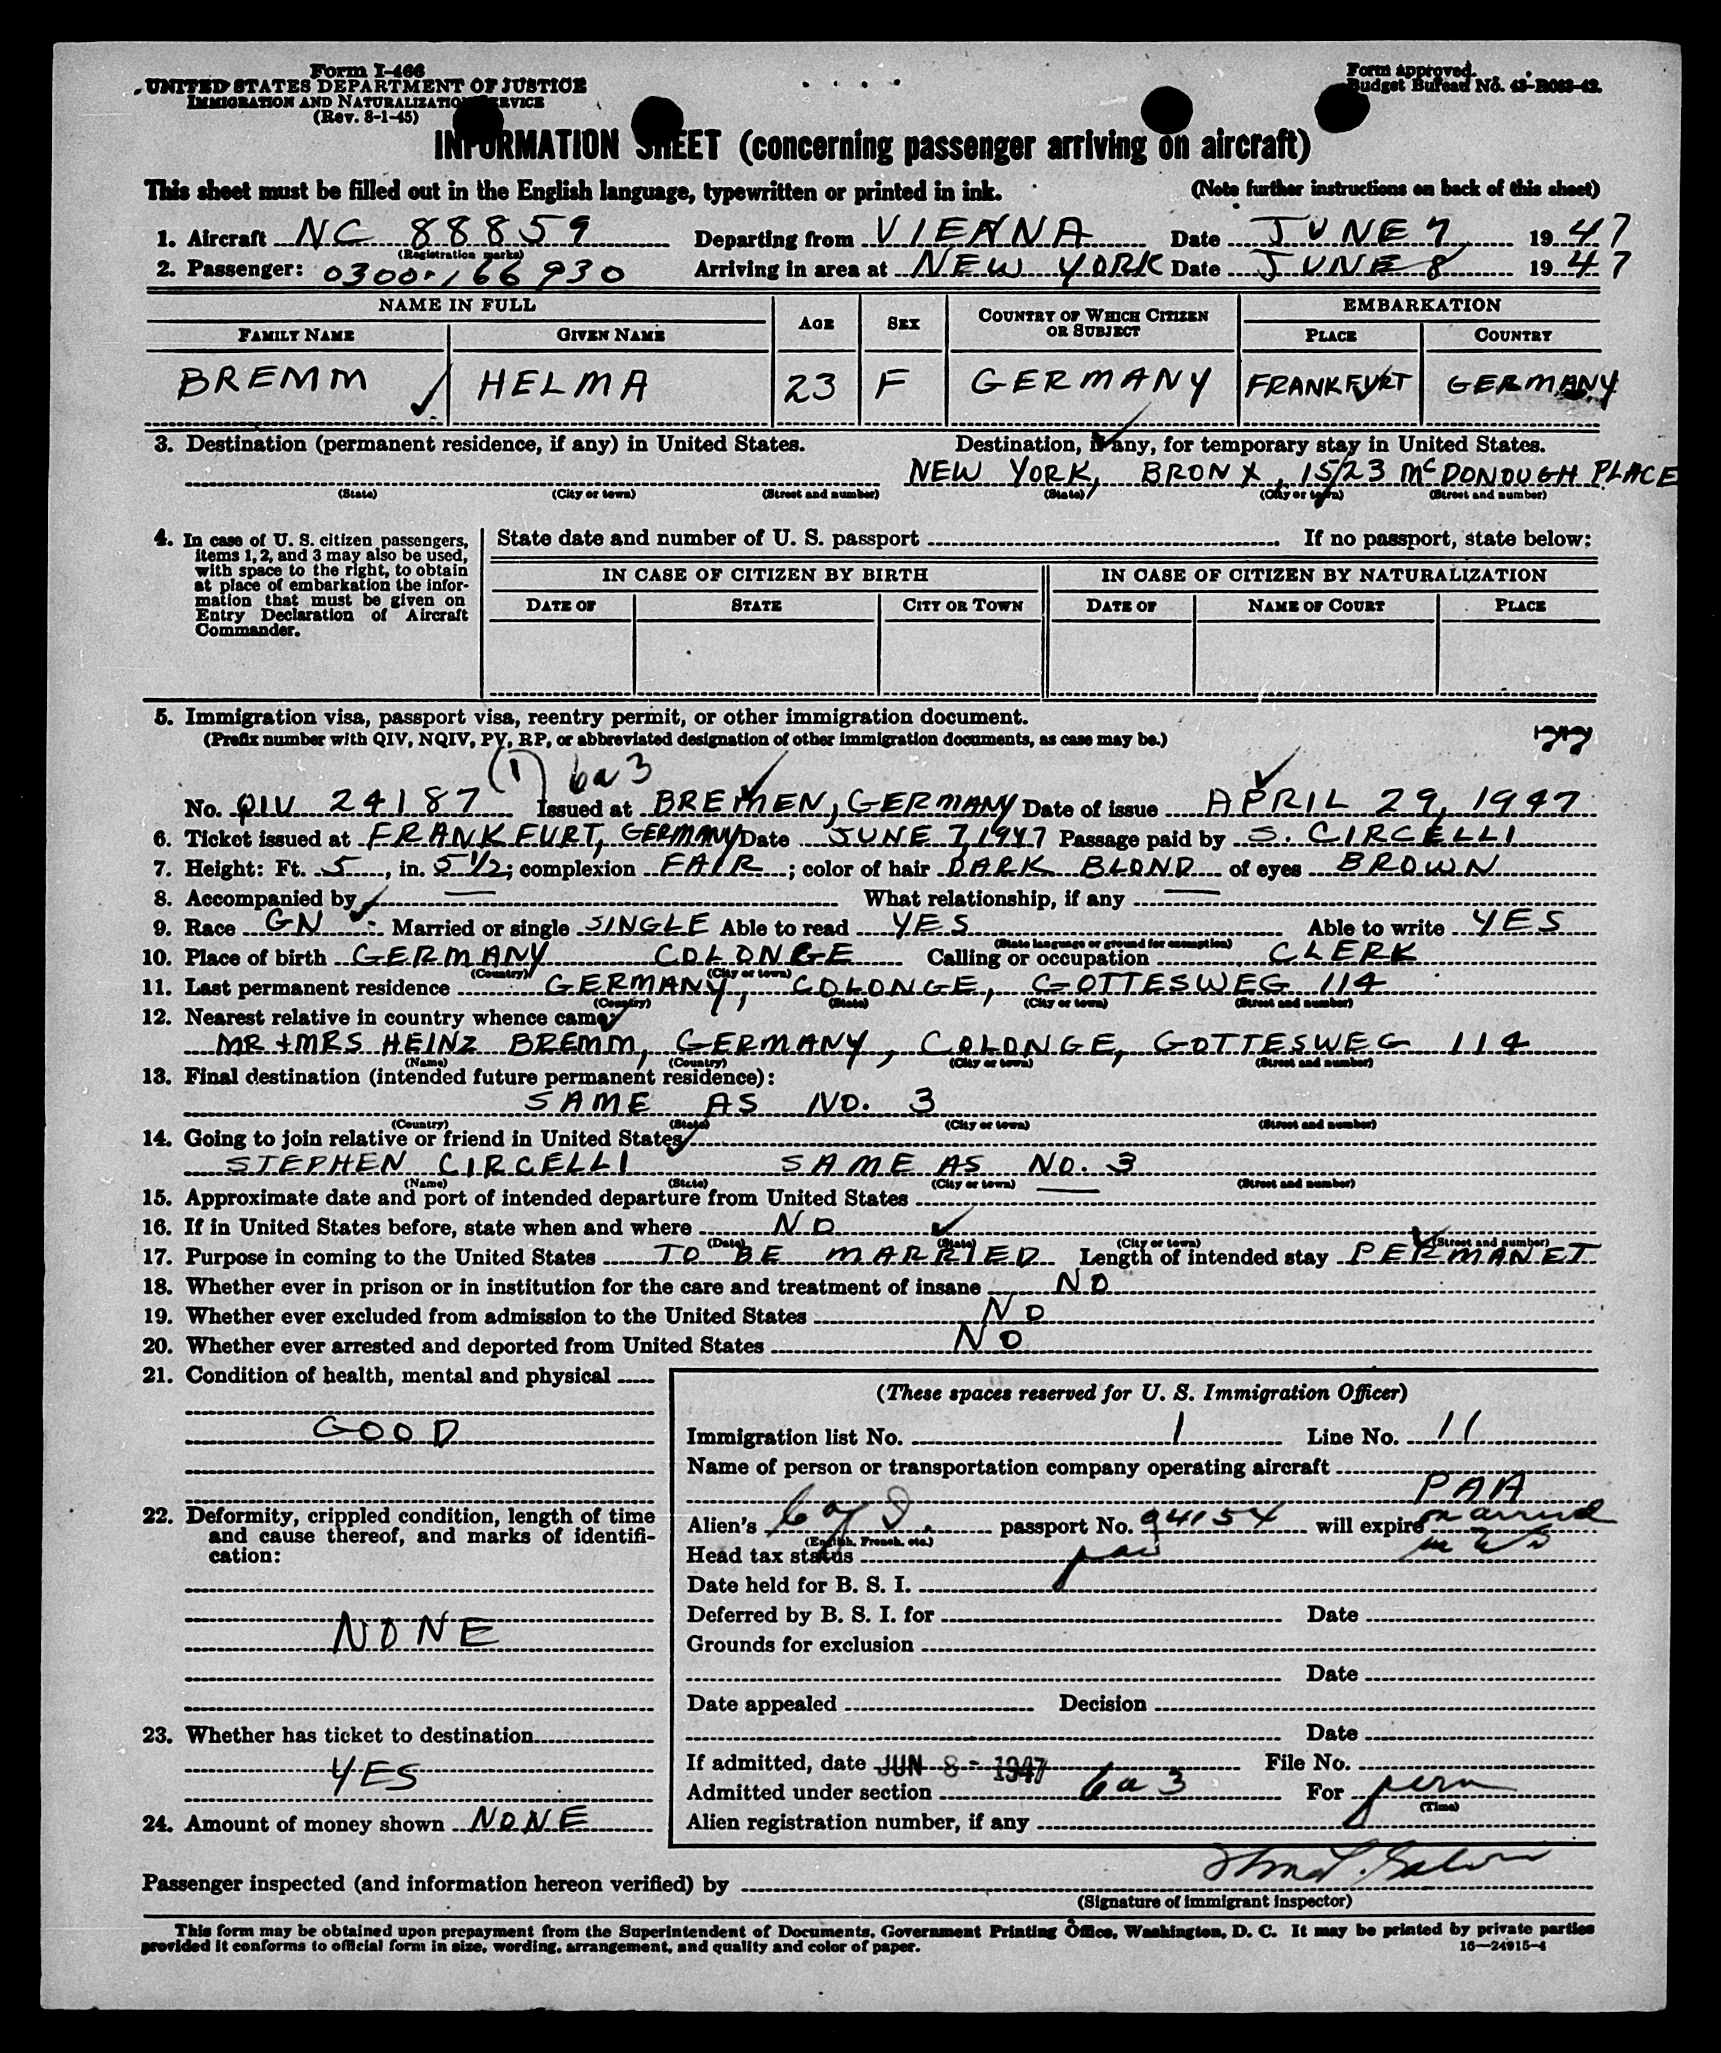 Form I-466
UNITED STATES DEPARTMENT OF JUSTICE
IMMIGRATION AND NATURALIZATION SERVICE
(Rev. 8-1-45)
Form approved.
Budget Bureau No. 43-R063-42.
INFORMATION SHEET (concerning passenger arriving on aircraft)
This sheet must be filled out in the English language, typewritten or printed in ink. (Note further instructions on back of this sheet)
1. Aircraft NC 88859 Departing from VIENNA Date JUNE 7 1947
(Registration marks)
2. Passenger: 0300-166930 Arriving in area at NEW YORK Date JUNE 8 1947
NAME IN FULL AGE SEX COUNTRY OF WHICH CITIZEN OR SUBJECT EMBARKATION
FAMILY NAME GIVEN NAME PLACE COUNTRY
BREMM HELMA 23 F GERMANY FRANKFURT GERMANY
3. Destination (permanent residence, if any) in United States. Destination, if any, for temporary stay in United States.
NEW YORK, BRONX, 1523 McDONOUGH PLACE
(State) (City or town) (Street and number) (State) (City or town) (Street and number)
4. In case of U. S. citizen passengers, items 1, 2, and 3 may also be used, with space to the right, to obtain at place of embarkation the information that must be given on Entry Declaration of Aircraft Commander.
State date and number of U. S. passport If no passport, state below:
IN CASE OF CITIZEN BY BIRTH IN CASE OF CITIZEN BY NATURALIZATION
DATE OF STATE CITY OR TOWN DATE OF NAME OF COURT PLACE
5. Immigration visa, passport visa, reentry permit, or other immigration document.
(Prefix number with QIV, NQIV, PV, RP, or abbreviated designation of other immigration documents, as case may be.)
(1) 6a3
No. QIV 24187 Issued at BREMEN, GERMANY Date of issue APRIL 29, 1947
6. Ticket issued at FRANKFURT, GERMANY Date JUNE 7, 1947 Passage paid by S. CIRCELLI
7. Height: Ft. 5, in. 5 1/2; complexion FAIR; color of hair DARK BLOND of eyes BROWN
8. Accompanied by — What relationship, if any —
9. Race GN Married or single SINGLE Able to read YES Able to write YES
(State language or ground for exemption)
10. Place of birth GERMANY COLONGE Calling or occupation CLERK
(Country) (City or town)
11. Last permanent residence GERMANY, COLONGE, GOTTESWEG 114
(Country) (State) (City or town) (Street and number)
12. Nearest relative in country whence came:
MR + MRS HEINZ BREMM, GERMANY, COLONGE, GOTTESWEG 114
(Name) (Country) (City or town) (Street and number)
13. Final destination (intended future permanent residence):
SAME AS NO. 3
(Country) (State) (City or town) (Street and number)
14. Going to join relative or friend in United States
STEPHEN CIRCELLI SAME AS NO. 3
(Name) (State) (City or town) (Street and number)
15. Approximate date and port of intended departure from United States —
16. If in United States before, state when and where NO
(Date) (State) (City or town) (Street and number)
17. Purpose in coming to the United States TO BE MARRIED Length of intended stay PERMANET
18. Whether ever in prison or in institution for the care and treatment of insane NO
19. Whether ever excluded from admission to the United States NO
20. Whether ever arrested and deported from United States NO
21. Condition of health, mental and physical
GOOD
22. Deformity, crippled condition, length of time and cause thereof, and marks of identification:
NONE
23. Whether has ticket to destination
YES
24. Amount of money shown NONE
(These spaces reserved for U. S. Immigration Officer)
Immigration list No. 1 Line No. 11
Name of person or transportation company operating aircraft
PAA
Alien's passport No. 94154 will expire
(English, French, etc.)
Head tax status
Date held for B. S. I.
Deferred by B. S. I. for Date
Grounds for exclusion
Date
Date appealed Decision
Date
If admitted, date JUN 8 - 1947 File No.
Admitted under section 6a3 For perm
(Time)
Alien registration number, if any
Passenger inspected (and information hereon verified) by
(Signature of immigrant inspector)
This form may be obtained upon prepayment from the Superintendent of Documents, Government Printing Office, Washington, D. C. It may be printed by private parties
provided it conforms to official form in size, wording, arrangement, and quality and color of paper. 16—24915-4